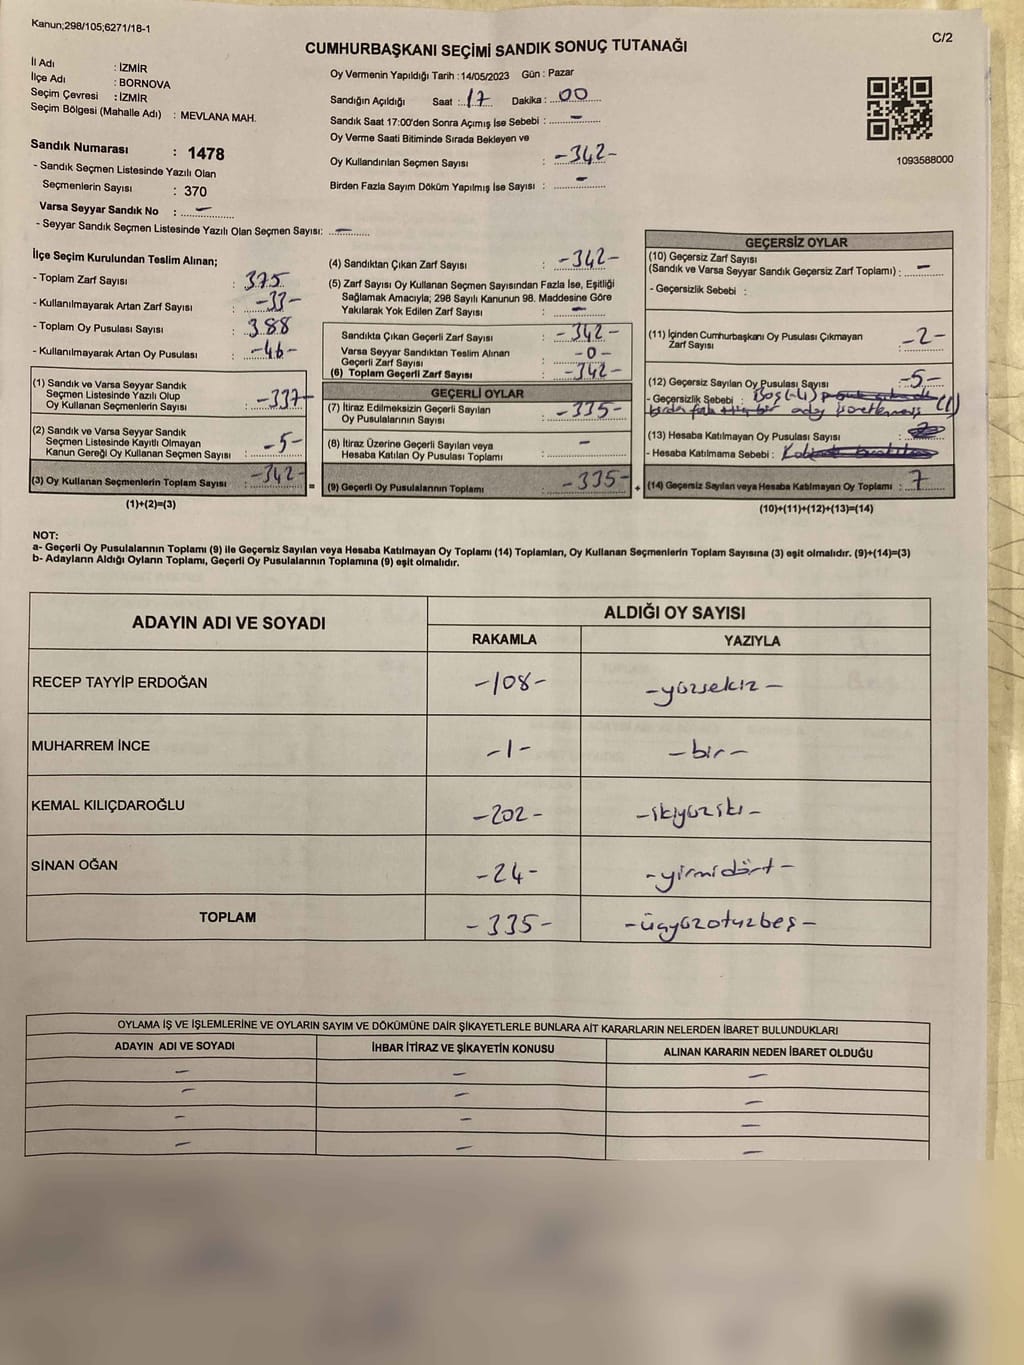 Kanun;298/105;6271/18-1
C/2
CUMHURBAŞKANI SEÇİMİ SANDIK SONUÇ TUTANAĞI
İl Adı : İZMİR
İlçe Adı : BORNOVA
Seçim Çevresi : İZMİR
Seçim Bölgesi (Mahalle Adı) : MEVLANA MAH.
Sandık Numarası : 1478
- Sandık Seçmen Listesinde Yazılı Olan
Seçmenlerin Sayısı : 370
Varsa Seyyar Sandık No : -
- Seyyar Sandık Seçmen Listesinde Yazılı Olan Seçmen Sayısı: -
Oy Vermenin Yapıldığı Tarih : 14/05/2023 Gün : Pazar
Sandığın Açıldığı Saat : 17 Dakika : 00
Sandık Saat 17:00'den Sonra Açımış İse Sebebi : -
Oy Verme Saati Bitiminde Sırada Bekleyen ve
Oy Kullandırılan Seçmen Sayısı : -342-
Birden Fazla Sayım Döküm Yapılmış İse Sayısı : -
1093588000
İlçe Seçim Kurulundan Teslim Alınan;
- Toplam Zarf Sayısı : 375
- Kullanılmayarak Artan Zarf Sayısı : -33-
- Toplam Oy Pusulası Sayısı : 388
- Kullanılmayarak Artan Oy Pusulası : -46-
(1) Sandık ve Varsa Seyyar Sandık
Seçmen Listesinde Yazılı Olup
Oy Kullanan Seçmenlerin Sayısı : -337-
(2) Sandık ve Varsa Seyyar Sandık
Seçmen Listesinde Kayıtlı Olmayan
Kanun Gereği Oy Kullanan Seçmen Sayısı : -5-
(3) Oy Kullanan Seçmenlerin Toplam Sayısı : -342- =
(1)+(2)=(3)
(4) Sandıktan Çıkan Zarf Sayısı : -342-
(5) Zarf Sayısı Oy Kullanan Seçmen Sayısından Fazla İse, Eşitliği
Sağlamak Amacıyla; 298 Sayılı Kanunun 98. Maddesine Göre
Yakılarak Yok Edilen Zarf Sayısı : -
Sandıkta Çıkan Geçerli Zarf Sayısı : -342-
Varsa Seyyar Sandıktan Teslim Alınan
Geçerli Zarf Sayısı : -0-
(6) Toplam Geçerli Zarf Sayısı : -342-
GEÇERLİ OYLAR
(7) İtiraz Edilmeksizin Geçerli Sayılan
Oy Pusulalarının Sayısı : -335-
(8) İtiraz Üzerine Geçerli Sayılan veya
Hesaba Katılan Oy Pusulası Toplamı : -
(9) Geçerli Oy Pusulalarının Toplamı : -335- +
GEÇERSİZ OYLAR
(10) Geçersiz Zarf Sayısı
(Sandık ve Varsa Seyyar Sandık Geçersiz Zarf Toplamı) : -
- Geçersizlik Sebebi :
(11) İçinden Cumhurbaşkanı Oy Pusulası Çıkmayan
Zarf Sayısı -2-
(12) Geçersiz Sayılan Oy Pusulası Sayısı -5-
- Geçersizlik Sebebi : Boş (4)
(1)
(13) Hesaba Katılmayan Oy Pusulası Sayısı :
- Hesaba Katılmama Sebebi :
(14) Geçersiz Sayılan veya Hesaba Katılmayan Oy Toplamı : 7
(10)+(11)+(12)+(13)=(14)
NOT:
a- Geçerli Oy Pusulalarının Toplamı (9) ile Geçersiz Sayılan veya Hesaba Katılmayan Oy Toplamı (14) Toplamları, Oy Kullanan Seçmenlerin Toplam Sayısına (3) eşit olmalıdır. (9)+(14)=(3)
b- Adayların Aldığı Oyların Toplamı, Geçerli Oy Pusulalarının Toplamına (9) eşit olmalıdır.
ADAYIN ADI VE SOYADI
ALDIĞI OY SAYISI
RAKAMLA YAZIYLA
RECEP TAYYİP ERDOĞAN -108- -yüzsekiz-
MUHARREM İNCE -1- -bir-
KEMAL KILIÇDAROĞLU -202- -ikiyüziki-
SİNAN OĞAN -24- -yirmidört-
TOPLAM -335- -üçyüzotuzbeş-
OYLAMA İŞ VE İŞLEMLERİNE VE OYLARIN SAYIM VE DÖKÜMÜNE DAİR ŞİKAYETLERLE BUNLARA AİT KARARLARIN NELERDEN İBARET BULUNDUKLARI
ADAYIN ADI VE SOYADI İHBAR İTİRAZ VE ŞİKAYETİN KONUSU ALINAN KARARIN NEDEN İBARET OLDUĞU
- - -
- - -
- - -
- - -